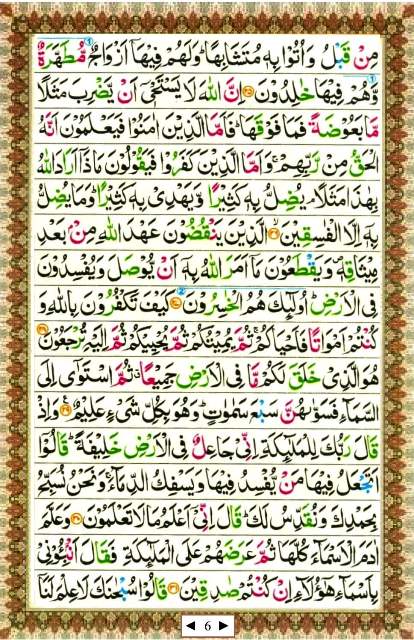 مِنْ قَبْلُ وَاُتُوْا بِهٖ مُتَشَابِهًا ؕ وَلَهُمْ فِيْهَاۤ اَزْوَاجٌ مُّطَهَّرَةٌ
وَّهُمْ فِيْهَا خٰلِدُوْنَ ﴿۲۵﴾ اِنَّ اللّٰهَ لَا يَسْتَحْيٖۤ اَنْ يَّضْرِبَ مَثَلًا
مَّا بَعُوْضَةً فَمَا فَوْقَهَا ؕ فَاَمَّا الَّذِيْنَ اٰمَنُوْا فَيَعْلَمُوْنَ اَنَّهُ
الْحَقُّ مِنْ رَّبِّهِمْ ۚ وَاَمَّا الَّذِيْنَ كَفَرُوْا فَيَقُوْلُوْنَ مَاذَاۤ اَرَادَ اللّٰهُ
بِهٰذَا مَثَلًا ۘ يُضِلُّ بِهٖ كَثِيْرًا وَّيَهْدِيْ بِهٖ كَثِيْرًا ؕ وَمَا يُضِلُّ
بِهٖۤ اِلَّا الْفٰسِقِيْنَ ﴿۲۶﴾ الَّذِيْنَ يَنْقُضُوْنَ عَهْدَ اللّٰهِ مِنْۢ بَعْدِ
مِيْثَاقِهٖ ۪ وَيَقْطَعُوْنَ مَاۤ اَمَرَ اللّٰهُ بِهٖۤ اَنْ يُّوْصَلَ وَيُفْسِدُوْنَ
فِي الْاَرْضِ ؕ اُولٰٓئِكَ هُمُ الْخٰسِرُوْنَ ﴿۲۷﴾ كَيْفَ تَكْفُرُوْنَ بِاللّٰهِ وَ
كُنْتُمْ اَمْوَاتًا فَاَحْيَاكُمْ ۚ ثُمَّ يُمِيْتُكُمْ ثُمَّ يُحْيِيْكُمْ ثُمَّ اِلَيْهِ تُرْجَعُوْنَ ﴿۲۸﴾
هُوَ الَّذِيْ خَلَقَ لَكُمْ مَّا فِي الْاَرْضِ جَمِيْعًا ۗ ثُمَّ اسْتَوٰۤى اِلَى
السَّمَآءِ فَسَوّٰىهُنَّ سَبْعَ سَمٰوٰتٍ ؕ وَهُوَ بِكُلِّ شَيْءٍ عَلِيْمٌ ﴿۲۹﴾ وَاِذْ
قَالَ رَبُّكَ لِلْمَلٰٓئِكَةِ اِنِّيْ جَاعِلٌ فِي الْاَرْضِ خَلِيْفَةً ؕ قَالُوْۤا
اَتَجْعَلُ فِيْهَا مَنْ يُّفْسِدُ فِيْهَا وَيَسْفِكُ الدِّمَآءَ ۚ وَنَحْنُ نُسَبِّحُ
بِحَمْدِكَ وَنُقَدِّسُ لَكَ ؕ قَالَ اِنِّيْۤ اَعْلَمُ مَا لَا تَعْلَمُوْنَ ﴿۳۰﴾ وَعَلَّمَ
اٰدَمَ الْاَسْمَآءَ كُلَّهَا ثُمَّ عَرَضَهُمْ عَلَى الْمَلٰٓئِكَةِ ۙ فَقَالَ اَنْۢبِـُٔوْنِيْ
بِاَسْمَآءِ هٰۤؤُلَآءِ اِنْ كُنْتُمْ صٰدِقِيْنَ ﴿۳۱﴾ قَالُوْا سُبْحٰنَكَ لَا عِلْمَ لَنَاۤ
◄ 6 ►